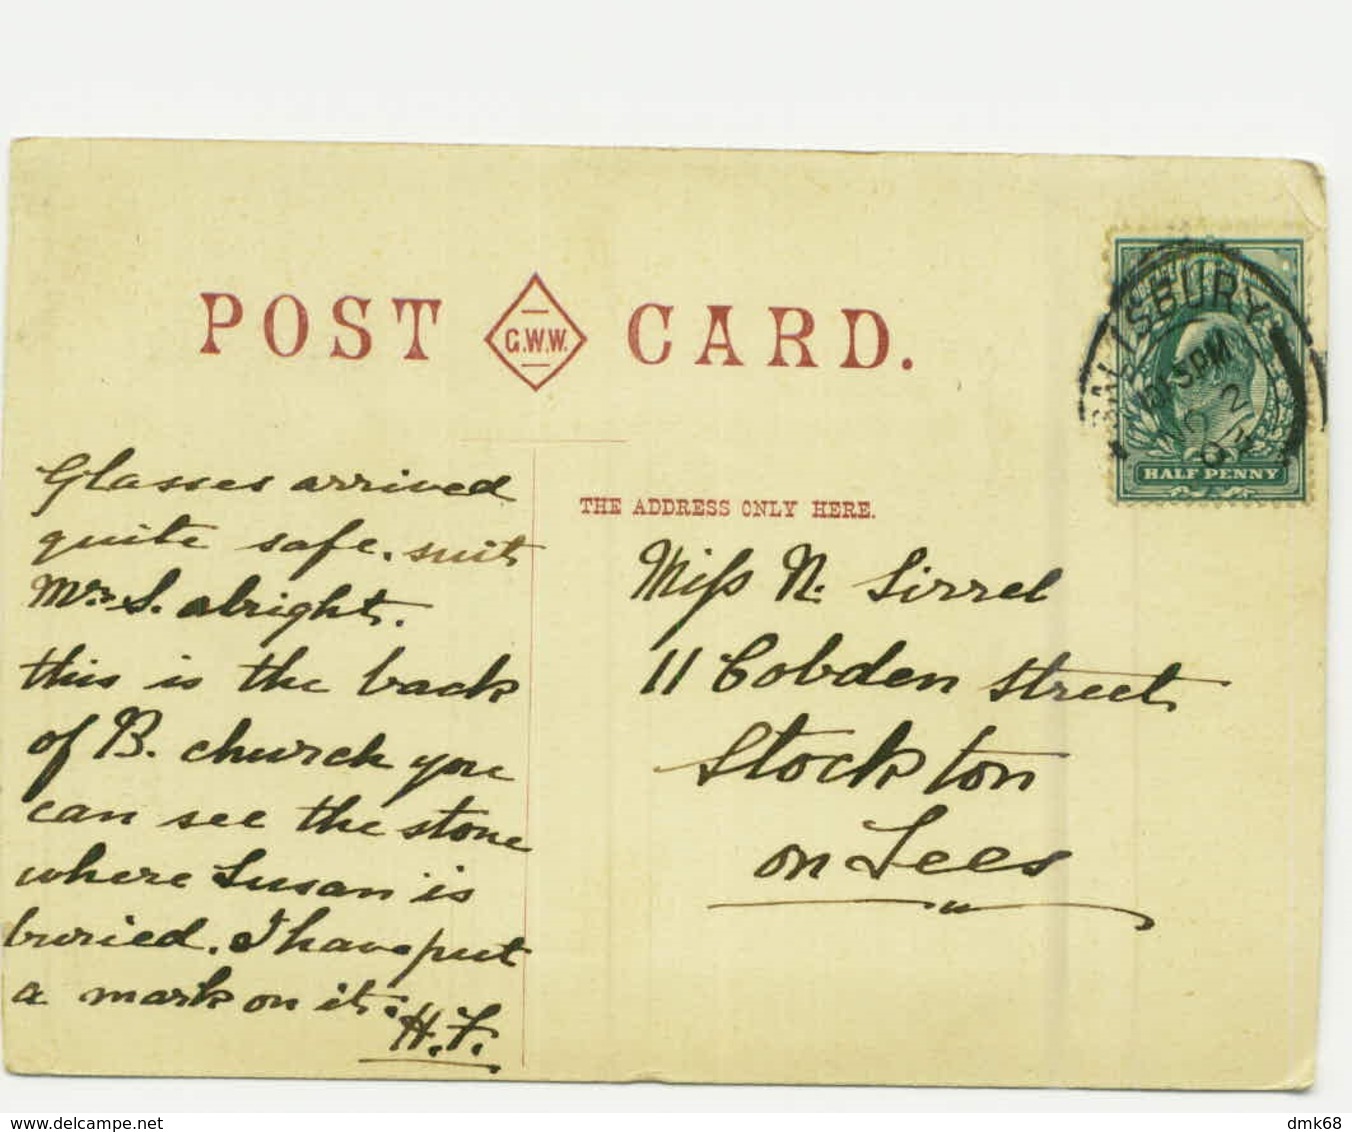 POST G.W.W. CARD.
SALISBURY
HALF PENNY
THE ADDRESS ONLY HERE.
Glasses arrived
quite safe. suit
Mrs S. alright.
this is the back
of B. church you
can see the stone
where Susan is
buried. I have put
a mark on it.
H.F.
Miss N. Sirrel
11 Cobden Street
Stockton
on Tees
www.delcampe.net
dmk68